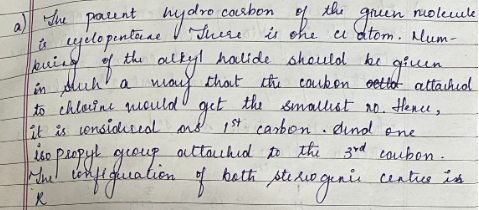 a) The parent hydrocarbon of the given molecule
is cyclopentane. There is one Cl atom. Num-
bering of the alkyl halide should be given
in such a way that the carbon attached
to chlorine would get the smallest no. Hence,
it is considered as 1st carbon. And one
isopropyl group attached to the 3rd carbon.
The configuration of both stereogenic centres is
R